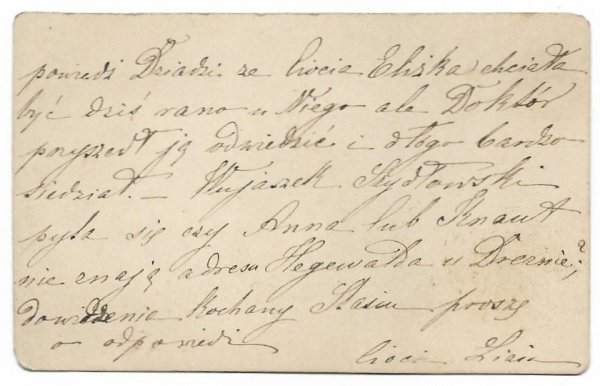 powiedz Dziadzi ze Ciocia Elizka chciała
być dziś rano u Niego ale Doktór
przyszedł ją odwiedzić i długo bardzo
siedział. – Wujaszek Szydłowski
pyta się czy Anna lub Knaut
nie znają adresu Hegewalda u Dreznie?,
dowidzenia Kochany Stasiu proszę
o odpowiedź
Ciocia Lizia